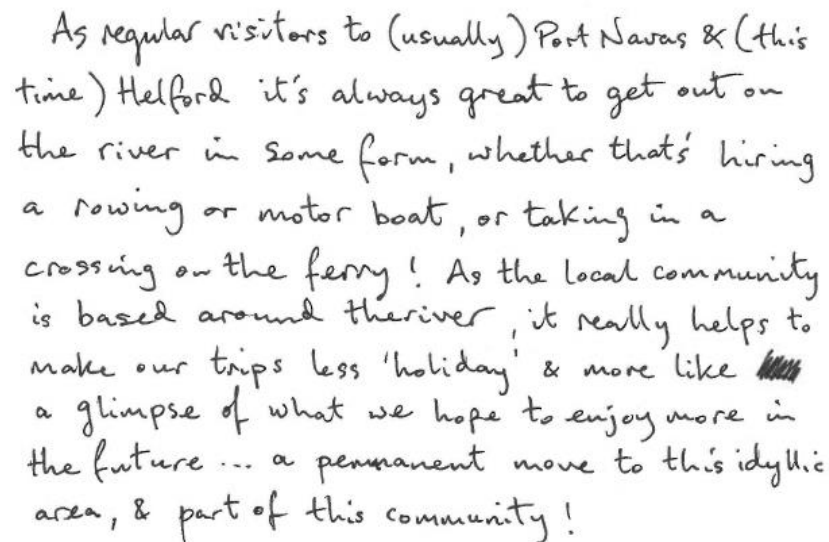 As regular visitors to (usually) Port Navas & (this
time) Helford it's always great to get out on
the river in some form, whether that's hiring
a rowing or motor boat, or taking in a
crossing on the ferry! As the local community
is based around theriver, it really helps to
make our trips less 'holiday' & more like
a glimpse of what we hope to enjoy more in
the future ... a permanent move to this idyllic
area, & part of this community!